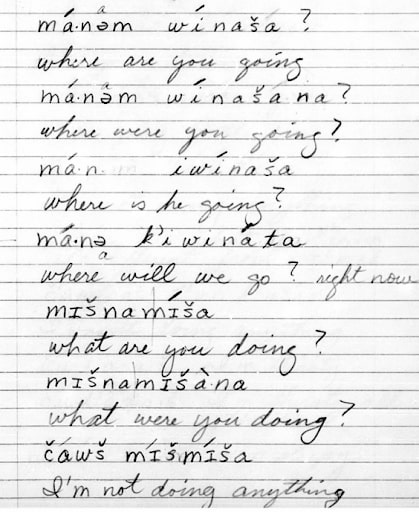 má·nəm wínaša ?
where are you going
má·nəm wínašá na?
where were you going?
má·n iwínaša
where is he going?
má·nə k'iwináta
where will we go? right now
mɪšnamɪ́ša
what are you doing?
mɪšnamɪšà·na
what were you doing?
čáwš mɪ́šmɪ́ša
I'm not doing anything